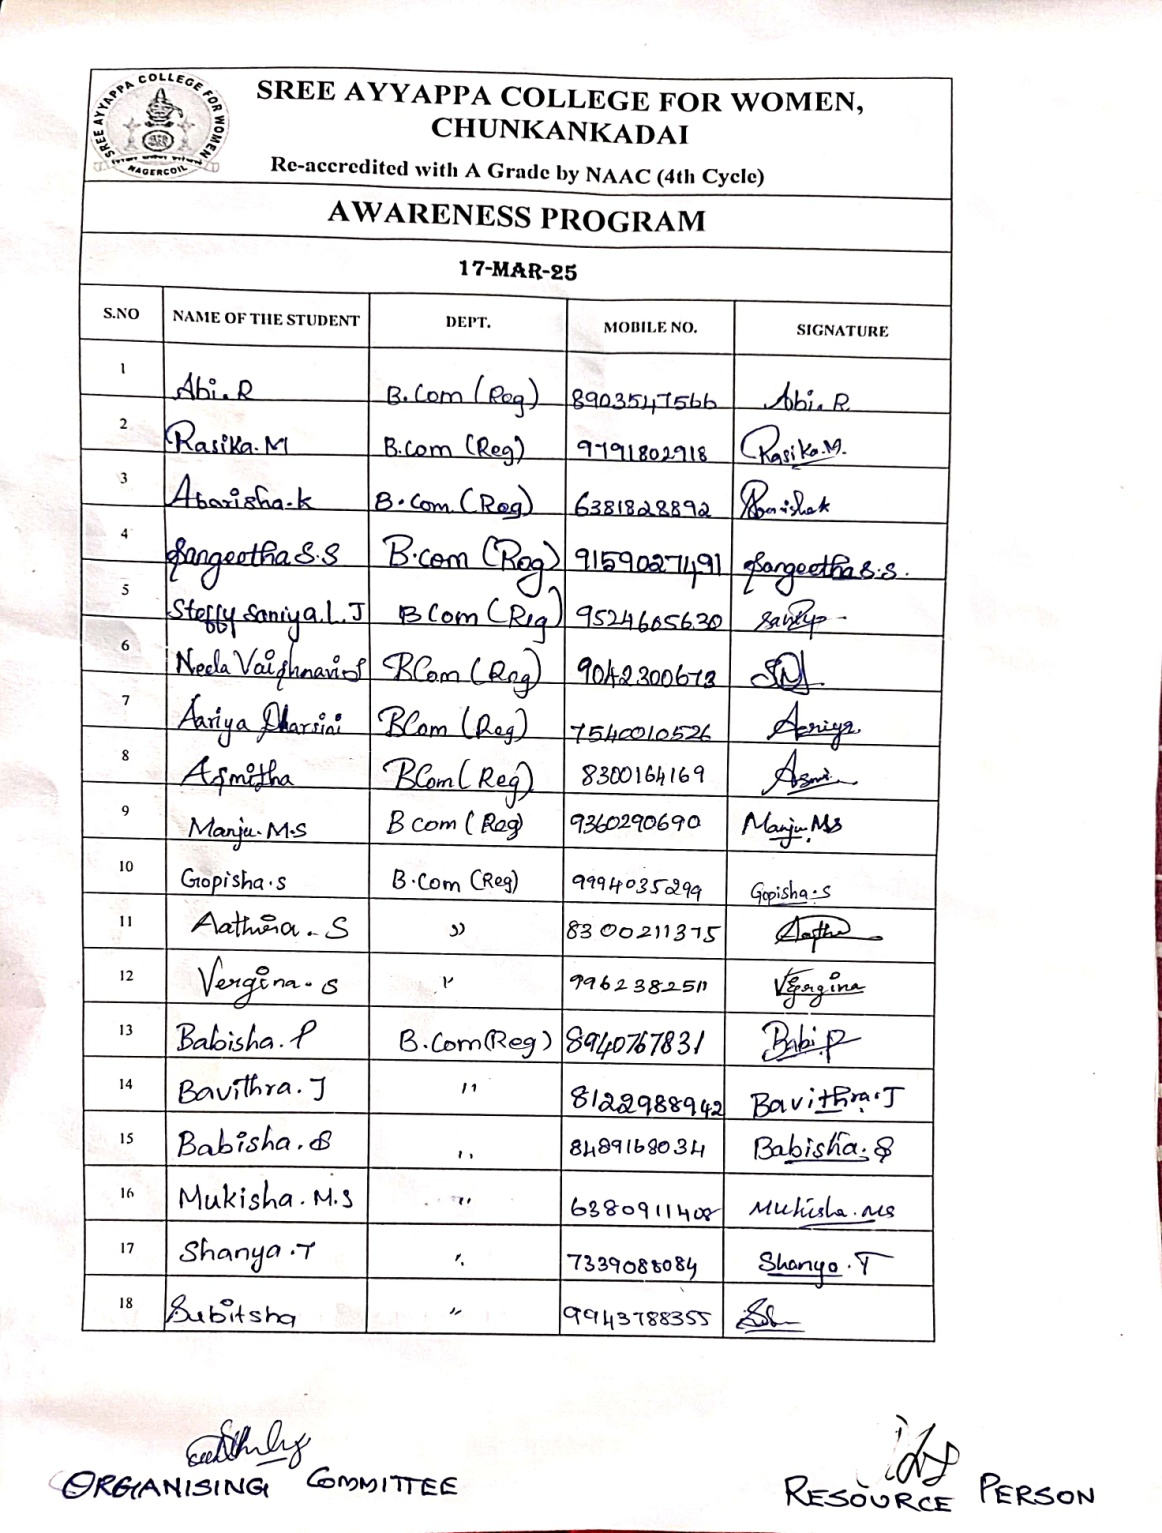 SREE AYYAPPA COLLEGE FOR WOMEN
NAGERCOIL
SREE AYYAPPA COLLEGE FOR WOMEN,
CHUNKANKADAI
Re-accredited with A Grade by NAAC (4th Cycle)
AWARENESS PROGRAM
17-MAR-25
S.NO NAME OF THE STUDENT DEPT. MOBILE NO. SIGNATURE
1 Abi.R B.Com (Reg) 8903547566 Abi.R
2 Rasika.M B.com (Reg) 9791802918 Rasika.M.
3 Abarisha.k B.com (Reg) 6381828892
4 Sangeetha S.S B.com (Reg) 9159027491 Sangeetha S.S.
5 Steffy Saniya.L.J B Com (Reg) 9524605630
6 Neela Vaishnavi S BCom (Reg) 9042300673
7 Aariya Dharsini BCom (Reg) 7540010526 Aariya
8 Asmitha BCom (Reg) 8300164169 Asmi
9 Manju.M.S B com (Reg) 9360290690 Manju.M.S
10 Gopisha.s B.Com (Reg) 9994035299 Gopisha.s
11 Aathira.S " 8300211375
12 Vergina.s " 9962382511 Vergina
13 Babisha.P B.Com(Reg) 8940767831 Babi.P
14 Bavithra.J " 8122988942 Bavithra.J
15 Babisha.S " 8489168034 Babisha.S
16 Mukisha.M.S " 6380911408 Mukisha.MS
17 Shanya.T " 7339088084 Shanya.T
18 Subitsha " 9943788355
ORGANISING COMMITTEE
RESOURCE PERSON